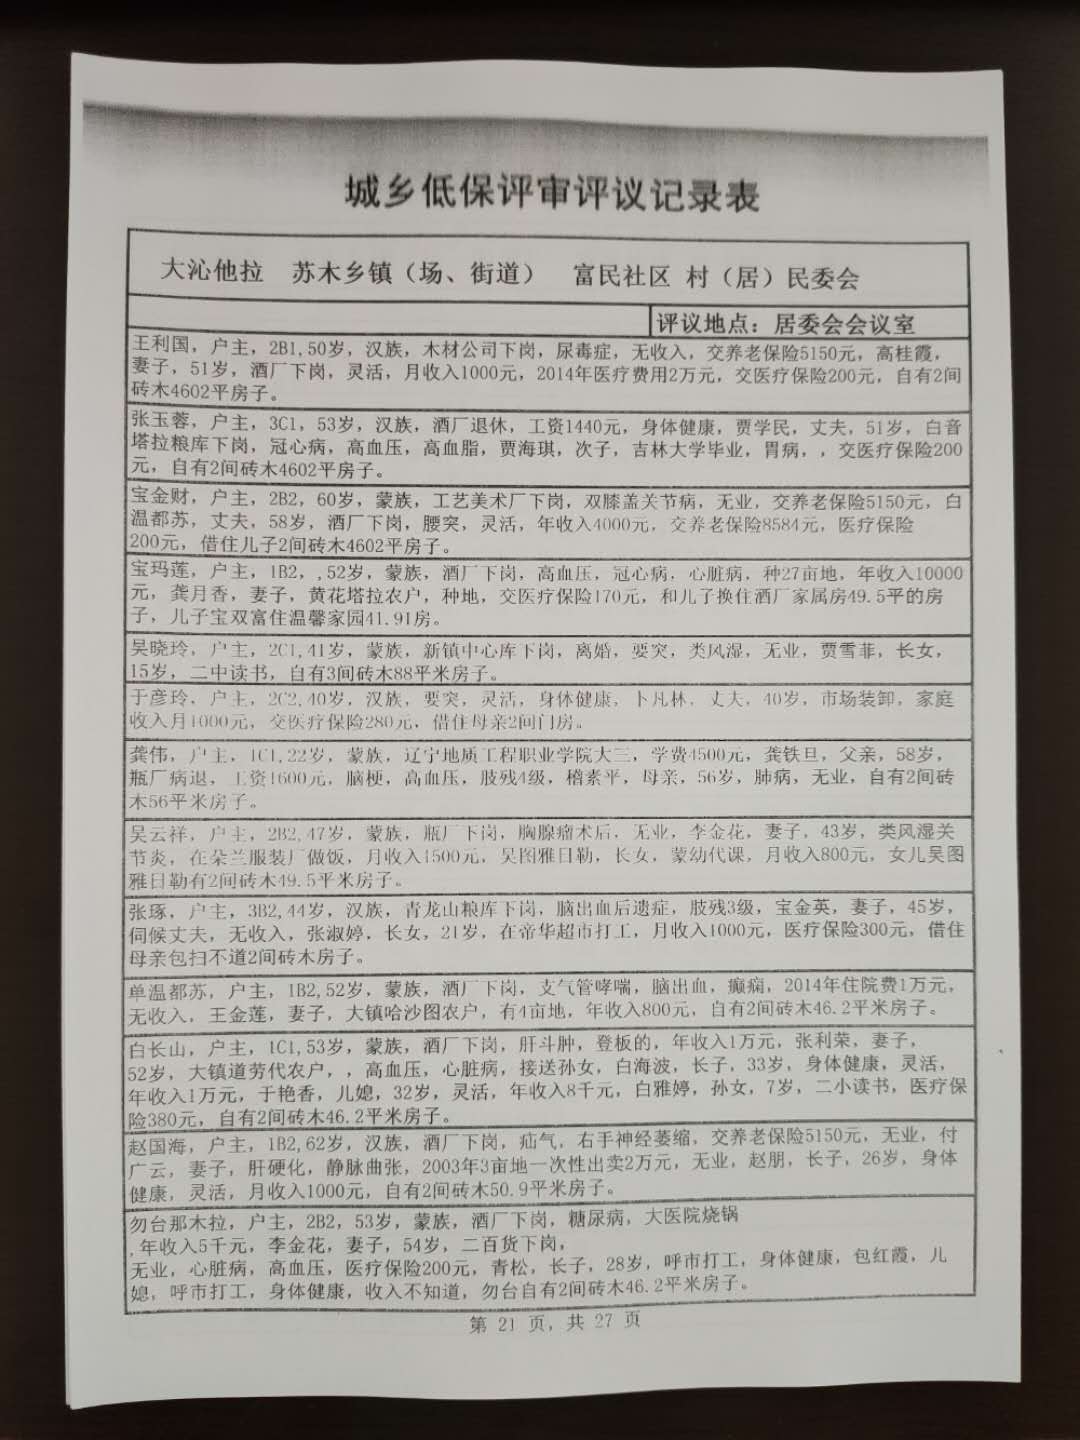 城乡低保评审评议记录表
大沁他拉 苏木乡镇（场、街道） 富民社区 村（居）民委会
评议地点：居委会会议室
王利国，户主，2B1,50岁，汉族，木材公司下岗，尿毒症，无收入，交养老保险5150元，高桂霞，
妻子，51岁，酒厂下岗，灵活，月收入1000元，2014年医疗费用2万元，交医疗保险200元，自有2间
砖木4602平房子。
张玉蓉，户主，3C1，53岁，汉族，酒厂退休，工资1440元，身体健康，贾学民，丈夫，51岁，白音
塔拉粮库下岗，冠心病，高血压，高血脂，贾海琪，次子，吉林大学毕业，胃病，，交医疗保险200
元，自有2间砖木4602平房子。
宝金财，户主，2B2，60岁，蒙族，工艺美术厂下岗，双膝盖关节病，无业，交养老保险5150元，白
温都苏，丈夫，58岁，酒厂下岗，腰突，灵活，年收入4000元，交养老保险8584元，医疗保险
200元，借住儿子2间砖木4602平房子。
宝玛莲，户主，1B2，,52岁，蒙族，酒厂下岗，高血压，冠心病，心脏病，种27亩地，年收入10000
元，龚月香，妻子，黄花塔拉农户，种地，交医疗保险170元，和儿子换住酒厂家属房49.5平的房
子，儿子宝双富住温馨家园41.91房。
吴晓玲，户主，2C1,41岁，蒙族，新镇中心库下岗，离婚，要突，类风湿，无业，贾雪菲，长女，
15岁，二中读书，自有3间砖木88平米房子。
于彦玲，户主，2C2,40岁，汉族，要突，灵活，身体健康，卜凡林，丈夫，40岁，市场装卸，家庭
收入月1000元，交医疗保险280元，借住母亲2间门房。
龚伟，户主，1C1,22岁，蒙族，辽宁地质工程职业学院大三，学费4500元，龚铁旦，父亲，58岁，
瓶厂病退，工资1600元，脑梗，高血压，肢残4级，稽素平，母亲，56岁，肺病，无业，自有2间砖
木56平米房子。
吴云祥，户主，2B2,47岁，蒙族，瓶厂下岗，胸腺瘤术后，无业，李金花，妻子，43岁，类风湿关
节炎，在朵兰服装厂做饭，月收入1500元，吴图雅日勒，长女，蒙幼代课，月收入800元，女儿吴图
雅日勒有2间砖木49.5平米房子。
张琢，户主，3B2,44岁，汉族，青龙山粮库下岗，脑出血后遗症，肢残3级，宝金英，妻子，45岁，
伺候丈夫，无收入，张淑婷，长女，21岁，在帝华超市打工，月收入1000元，医疗保险300元，借住
母亲包扫不道2间砖木房子。
单温都苏，户主，1B2,52岁，蒙族，酒厂下岗，支气管哮喘，脑出血，癫痫，2014年住院费1万元，
无收入，王金莲，妻子，大镇哈沙图农户，有4亩地，年收入800元，自有2间砖木46.2平米房子。
白长山，户主，1C1,53岁，蒙族，酒厂下岗，肝斗肿，登板的，年收入1万元，张利荣，妻子，
52岁，大镇道劳代农户，，高血压，心脏病，接送孙女，白海波，长子，33岁，身体健康，灵活，
年收入1万元，于艳香，儿媳，32岁，灵活，年收入8千元，白雅婷，孙女，7岁，二小读书，医疗保
险380元，自有2间砖木46.2平米房子。
赵国海，户主，1B2,62岁，汉族，酒厂下岗，疝气，右手神经萎缩，交养老保险5150元，无业，付
广云，妻子，肝硬化，静脉曲张，2003年3亩地一次性出卖2万元，无业，赵朋，长子，26岁，身体
健康，灵活，月收入1000元，自有2间砖木50.9平米房子。
勿台那木拉，户主，2B2，53岁，蒙族，酒厂下岗，糖尿病，大医院烧锅
,年收入5千元，李金花，妻子，54岁，二百货下岗，
无业，心脏病，高血压，医疗保险200元，青松，长子，28岁，呼市打工，身体健康，包红霞，儿
媳，呼市打工，身体健康，收入不知道，勿台自有2间砖木46.2平米房子。
第 21 页，共 27 页